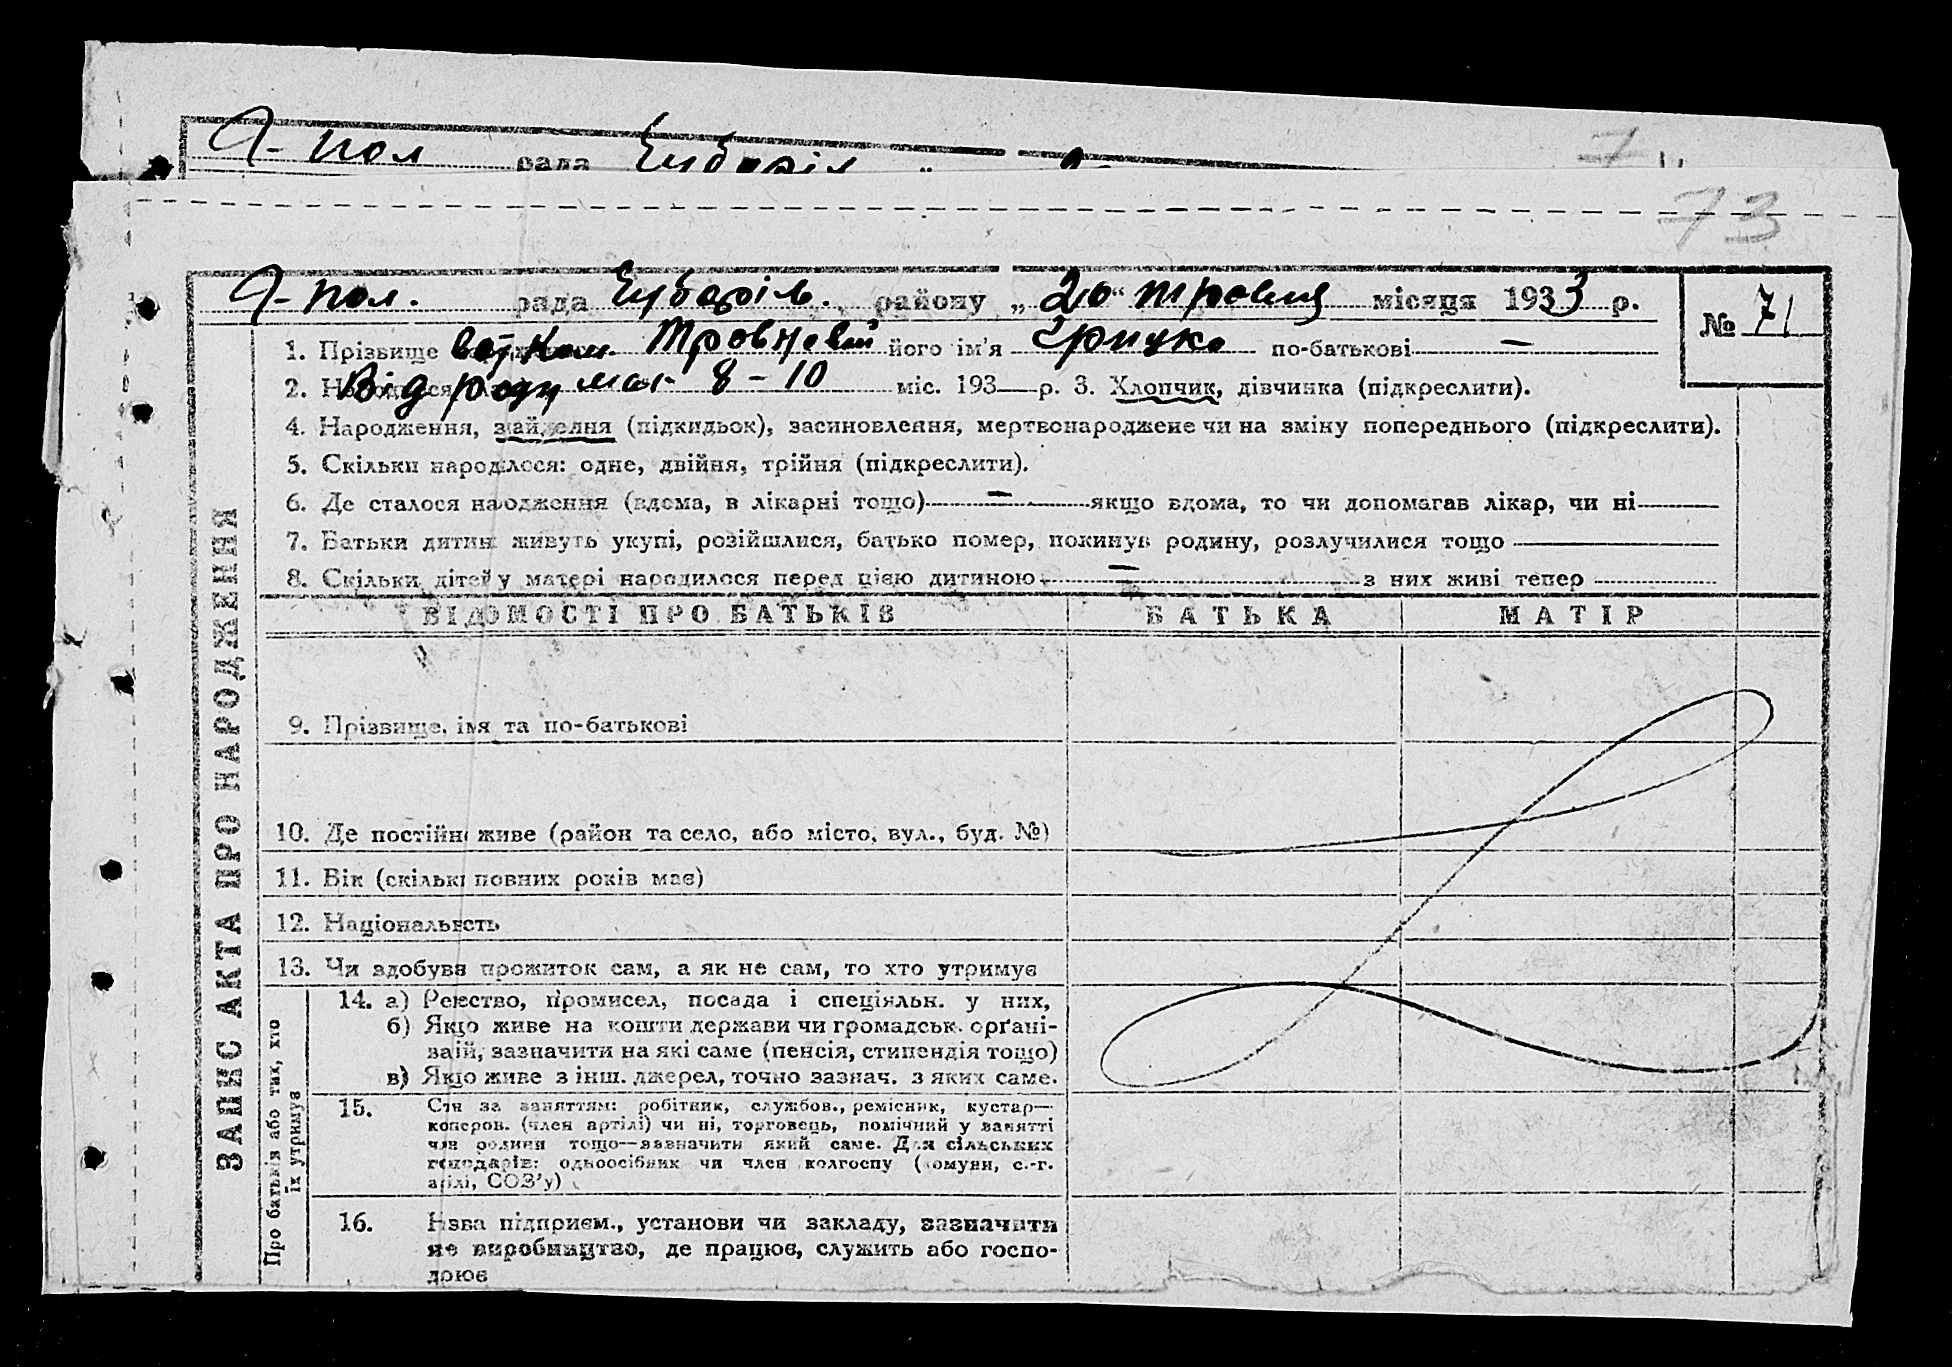 рада
7
73
рада району „ 20 “ травня місяця 1933 р.
№ 71
1. Прізвище Травневий його ім’я Грицько по-батькові —
2. Від роду має 8 – 10 міс. 193 р. 3. Хлопчик, дівчинка (підкреслити).
4. Народження, знайдення (підкидьок), засиновлення, мертвонароджене чи на зміну попереднього (підкреслити).
5. Скільки народилося: одне, двійня, трійня (підкреслити).
6. Де сталося народження (вдома, в лікарні тощо) — якщо вдома, то чи допомагав лікар, чи ні
7. Батьки дитини живуть укупі, розійшлися, батько помер, покинув родину, розлучилися тощо
8. Скільки дітей у матері народилося перед цією дитиною — з них живі тепер
ВІДОМОСТІ ПРО БАТЬКІВ БАТЬКА МАТІР
9. Прізвище, імя та по-батькові
10. Де постійно живе (район та село, або місто, вул., буд. №)
11. Вік (скільки повних років має)
12. Національність
13. Чи здобував прожиток сам, а як не сам, то хто утримує
14. а) Ремество, промисел, посада і спеціяльн. у них,
б) Якщо живе на кошти держави чи громадськ. орґані-
зацій, зазначити на які саме (пенсія, стипендія тощо)
в) Якщо живе з інш. джерел, точно зазнач. з яких саме.
15. Стан за заняттям: робітник, службов., ремісник, кустар—
коперов. (член артілі) чи ні, торговець, помічний у занятті
член родини тощо—зазначити який саме. Для сільських
господарів: одноосібник чи член колгоспу (комуни, с.-г.
артілі, СОЗ’у)
16. Назва підприєм., установи чи закладу, зазначити
де працює, служить або госпо-
дарює
ЗАПИС АКТА ПРО НАРОДЖЕННЯ
Про батьків або тих, хто
їх утримує